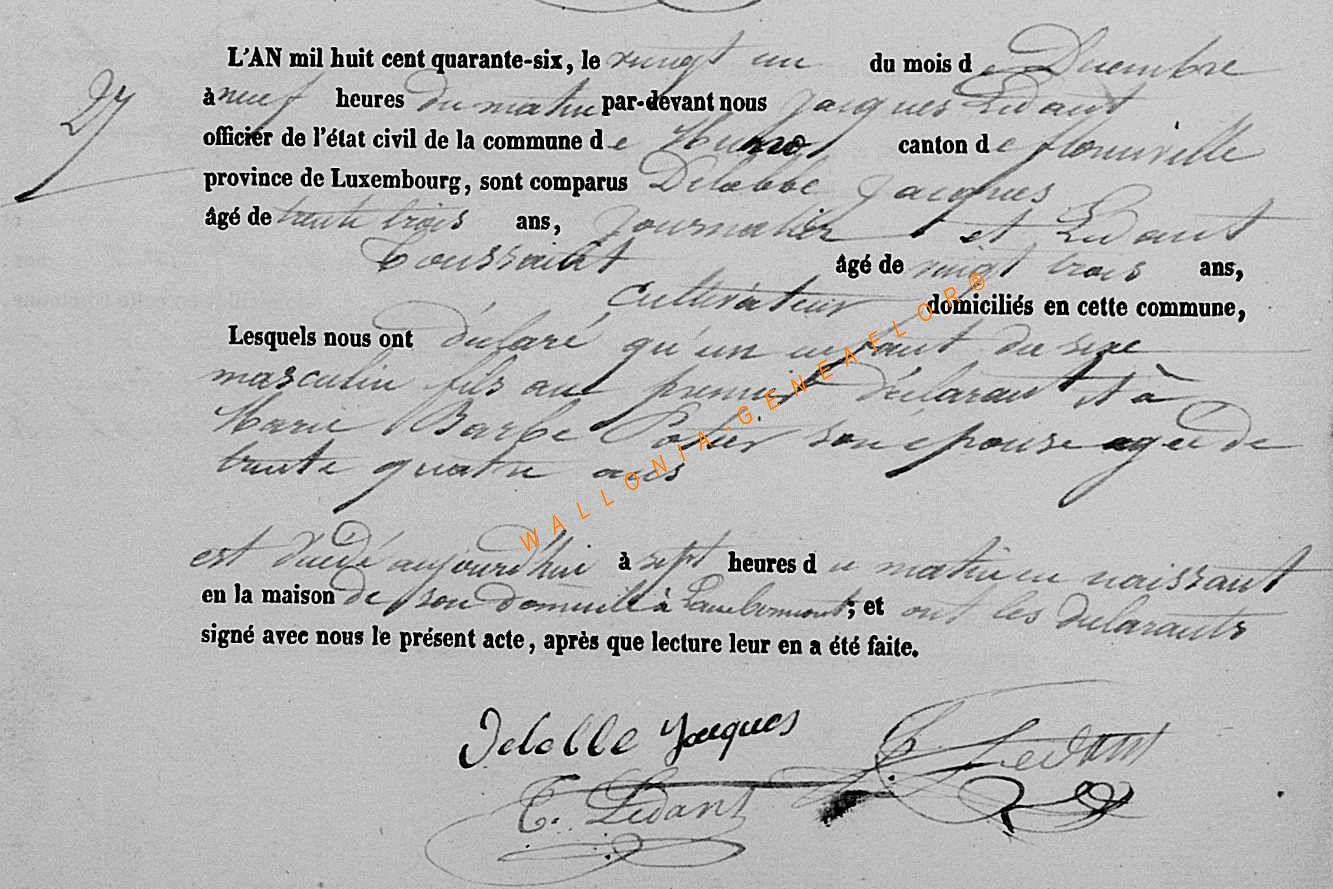 L'AN mil huit cent quarante-six, le vingt un du mois de Decembre
27
à neuf heures du matin par-devant nous Jacques Ledant
officier de l'état civil de la commune de Muno canton de florenville
province de Luxembourg, sont comparus Delobbe Jacques
âgé de trente trois ans, Journalier et Ledant
Toussaint âgé de vingt trois ans,
Cultivateur domiciliés en cette commune,
Lesquels nous ont déclaré qu'un enfant du sexe
masculin fils au premier déclarant et à
Marie Barbe son epouse agée de
trente quatre ans
est décédé aujourd'hui à sept heures du matin en naissant
en la maison de son domicile à Lambermont; et ont les déclarants
signé avec nous le présent acte, après que lecture leur en a été faite.
Delobbe Jacques
Ledant
T. Ledant
WALLONIA-GENEAFLOR®